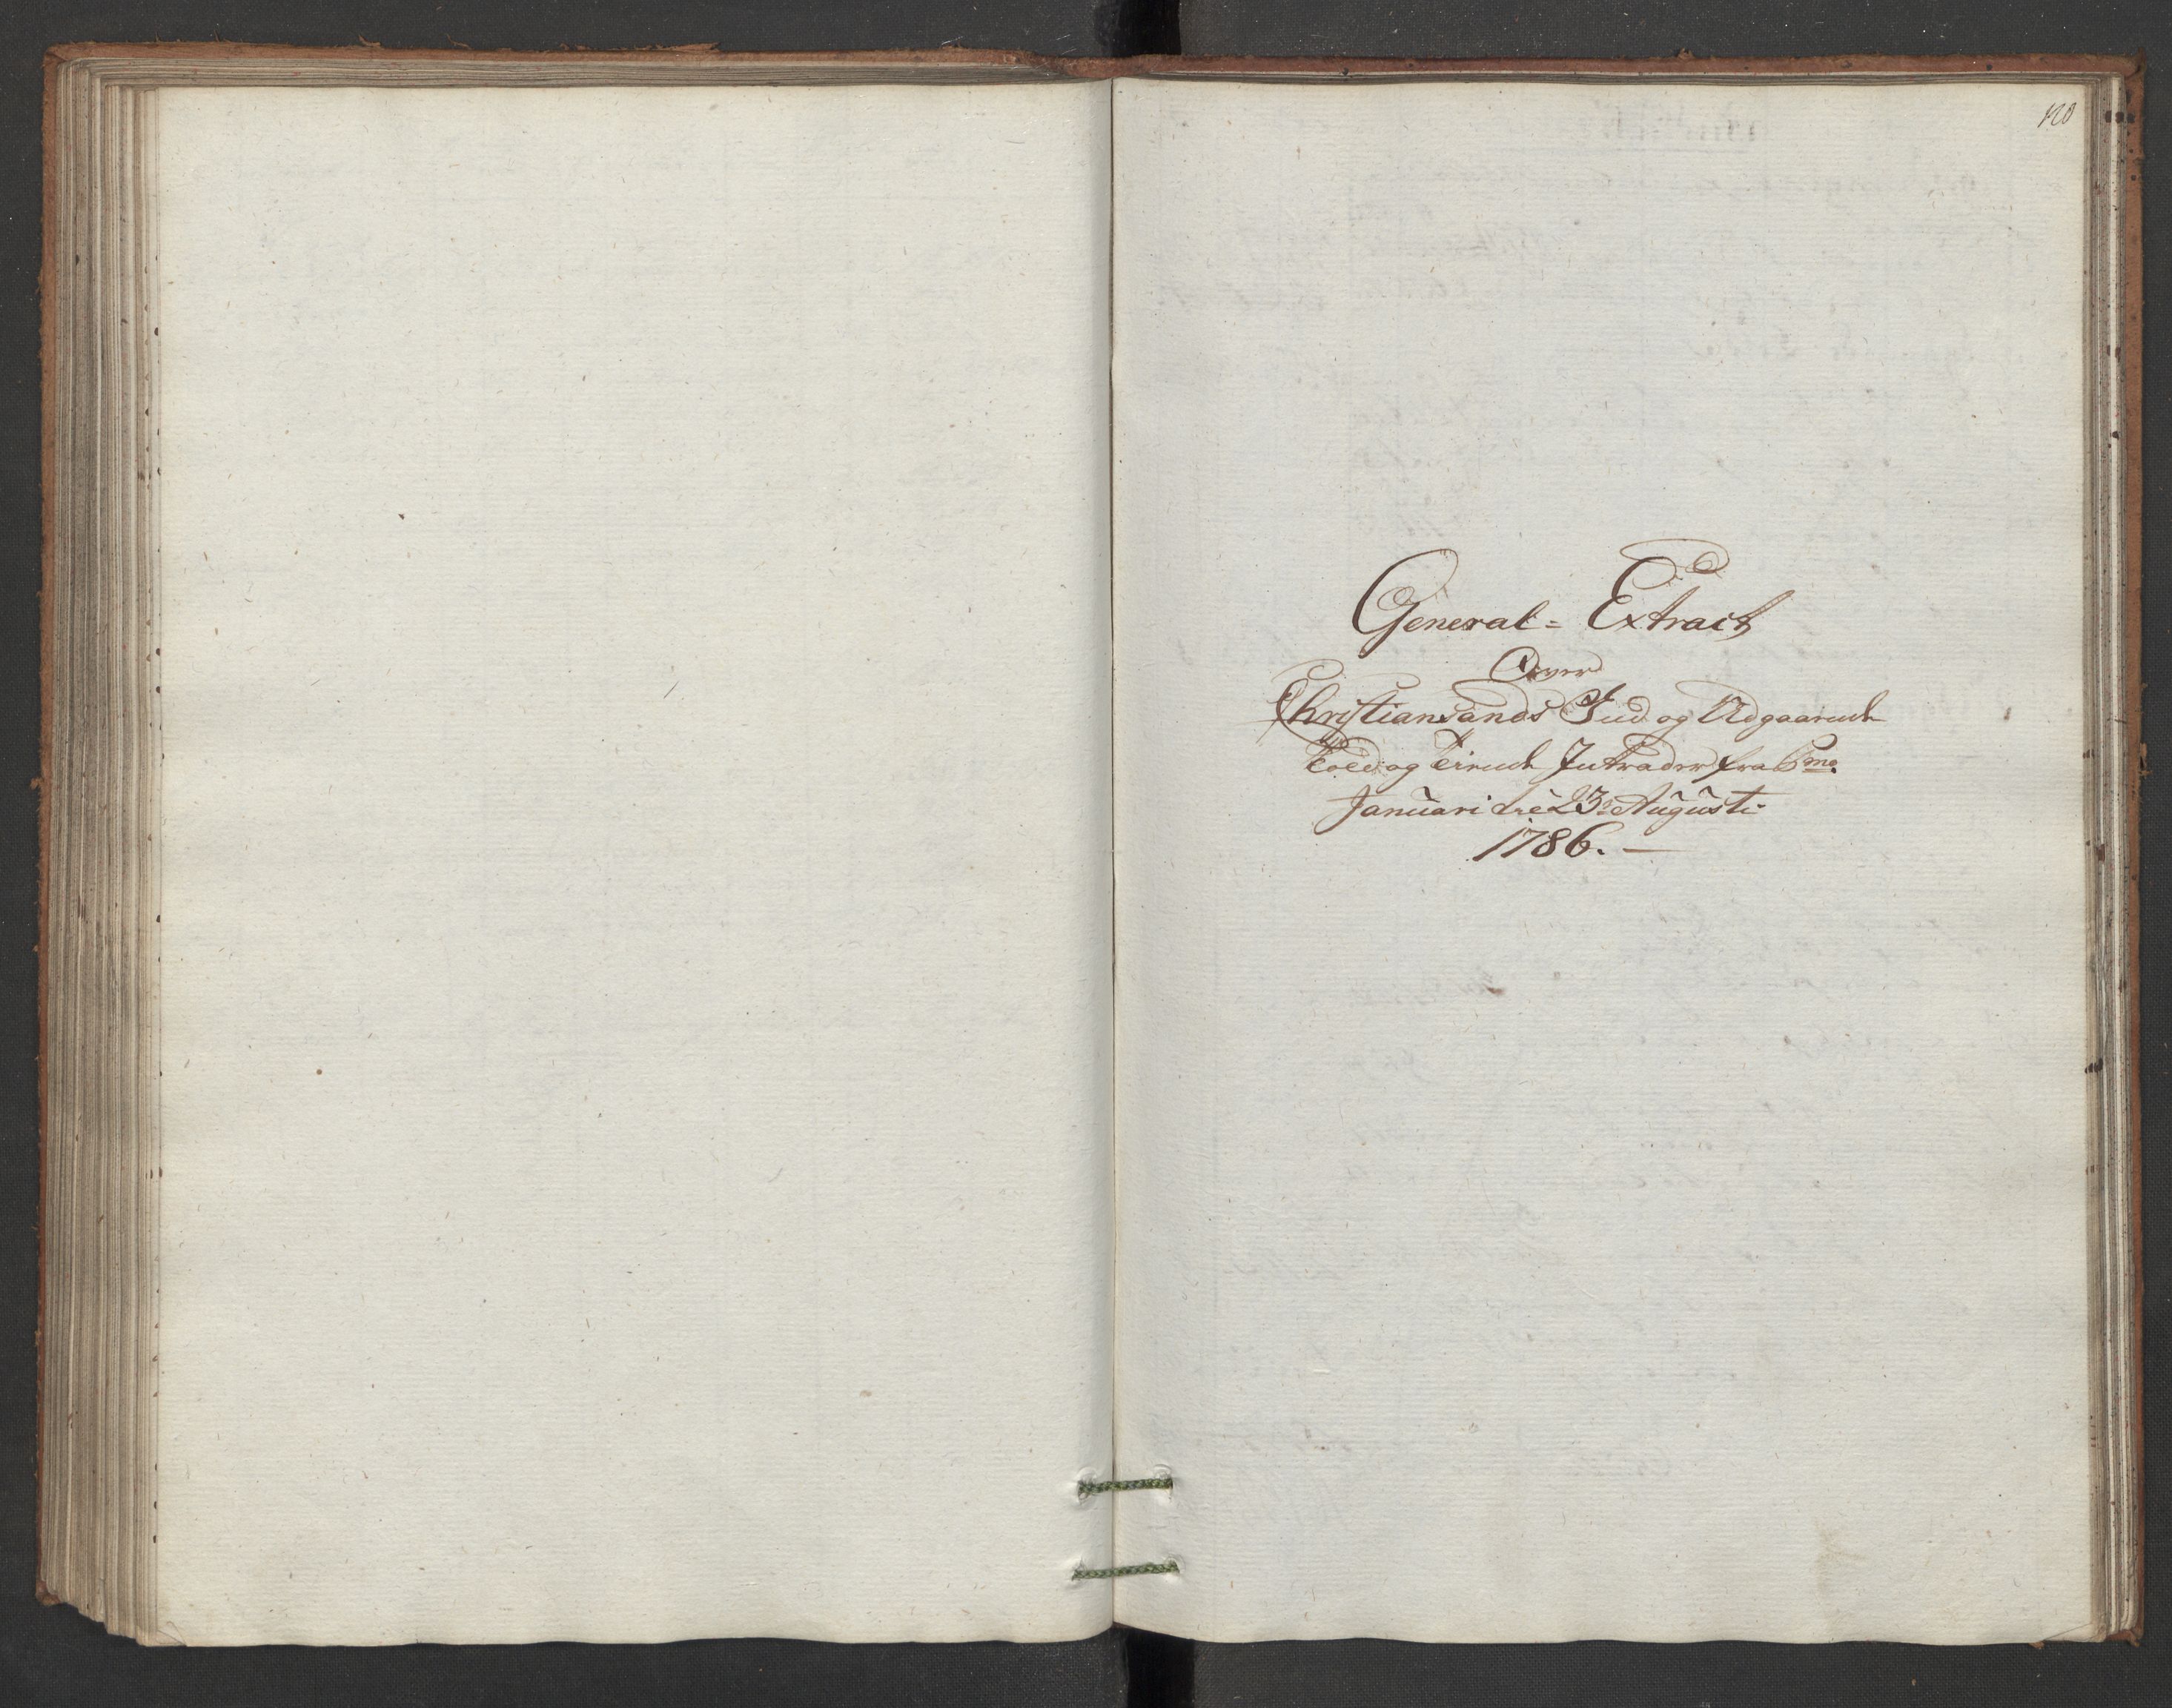 120
General-Extract
Over
Christiansands Ind og Udgaaende
Told og Tiende Intrader fra
Januari til 23de Augusti
1786.